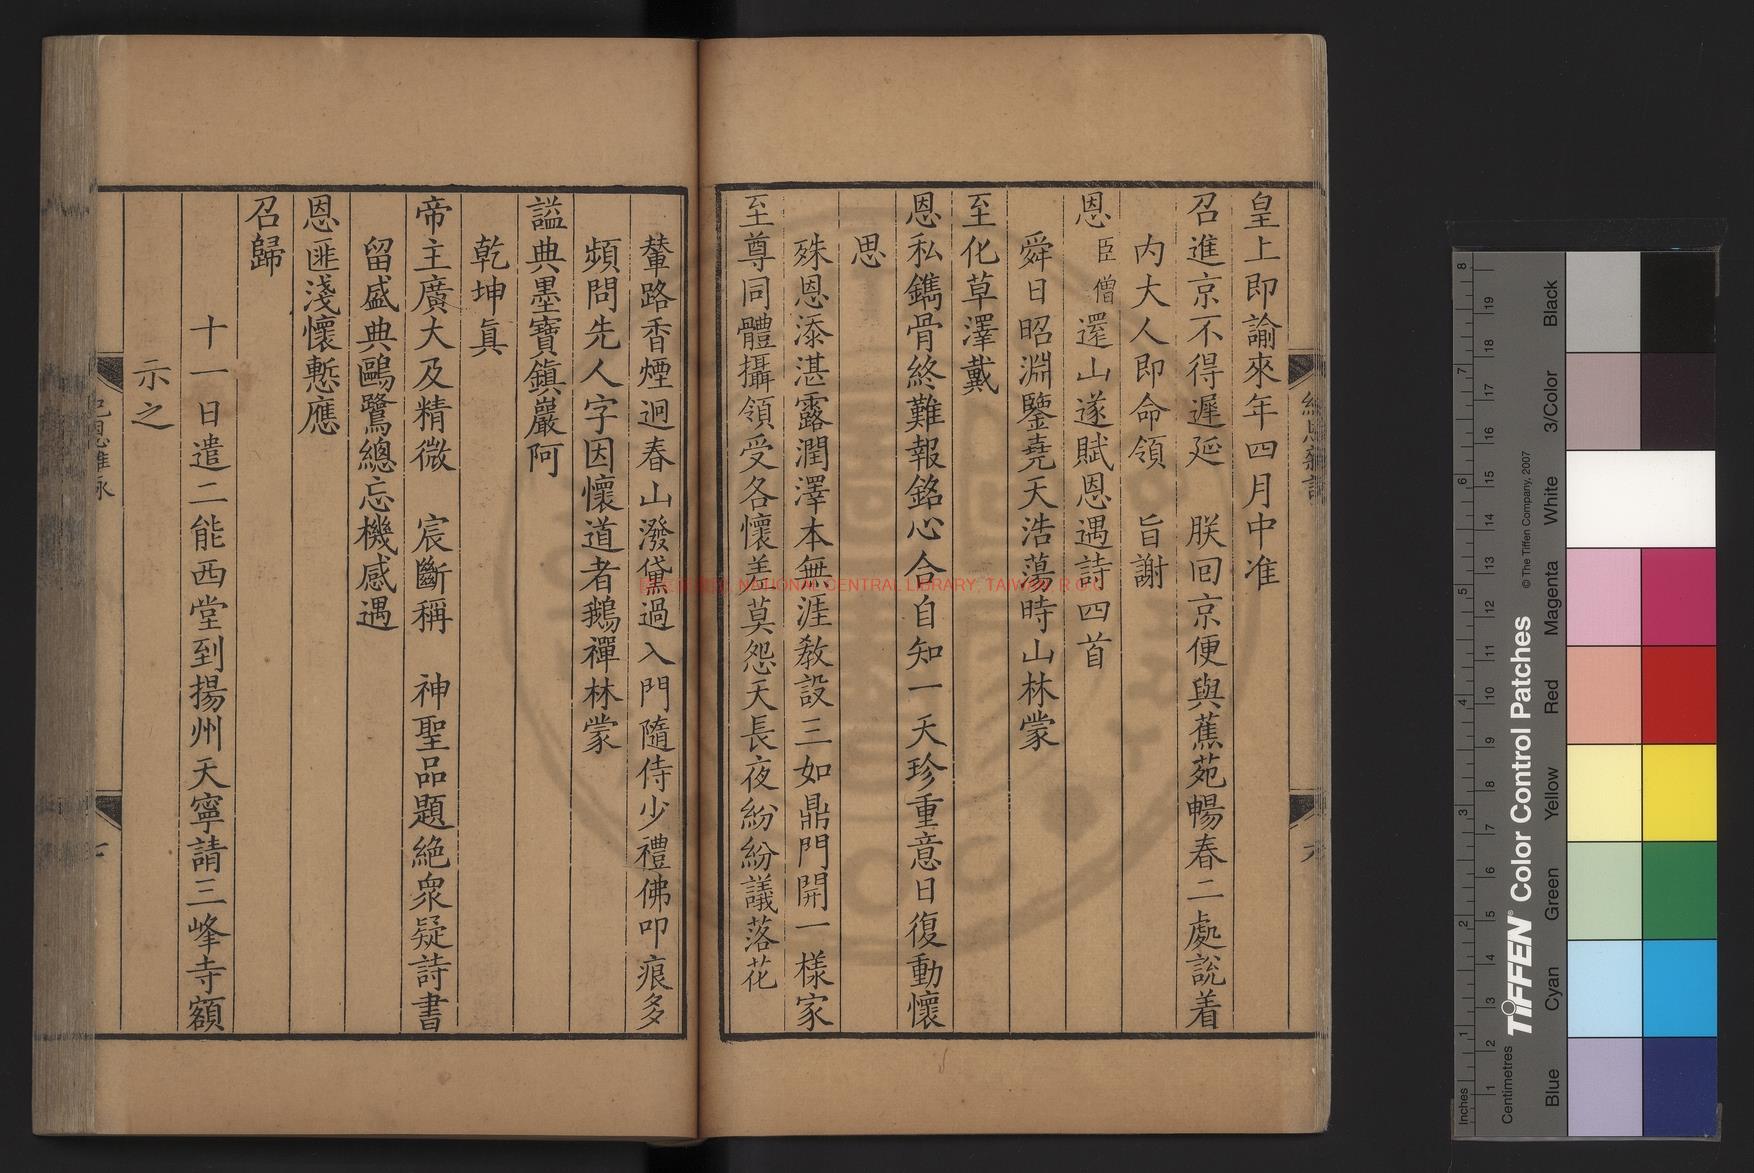 皇上即諭來年四月中准
召進京不得遲延　朕回京便與蕉苑暢春二處説着
内大人即命領　旨謝
恩臣僧還山遂賦恩遇詩四首
舜日昭淵鑒堯天浩蕩時山林蒙
至化草澤戴
恩私鐫骨終難報銘心合自知一天珍重意日復動懷
思
殊恩添湛露潤澤本無涯教設三如鼎門開一樣家
至尊同體攝領受各懷羞莫怨天長夜紛紛議落花
輦路香煙迥春山潑黛過入門隨侍少禮佛叩痕多
頻問先人字因懷道者鵝禪林蒙
謚典墨寶鎮巖阿
乾坤真
帝主廣大及精微　宸斷稱　神聖品題絶衆疑詩書
留盛典鷗鷺總忘機感遇
恩匪淺懷慙應
召歸
十一日遣二能西堂到揚州天寧請三峰寺額
示之
NATIONAL CENTRAL LIBRARY, TAIWAN, R.O.C
TIFFEN® Color Control Patches
© The Tiffen Company, 2007
Inches
Centimetres
Blue
Cyan
Green
Yellow
Red
Magenta
White
3/Color
Black